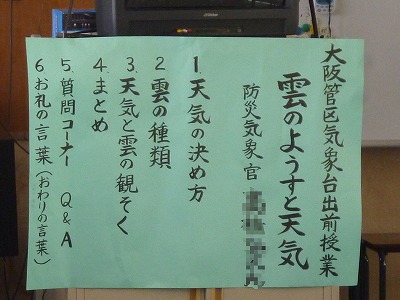 大阪管区気象台出前授業
雲のようすと天気
防災気象官
1.天気の決め方
2 雲の種類
3.天気と雲の観そく
4.まとめ
5.質問コーナー Q&A
6 お礼の言葉(おわりの言葉)